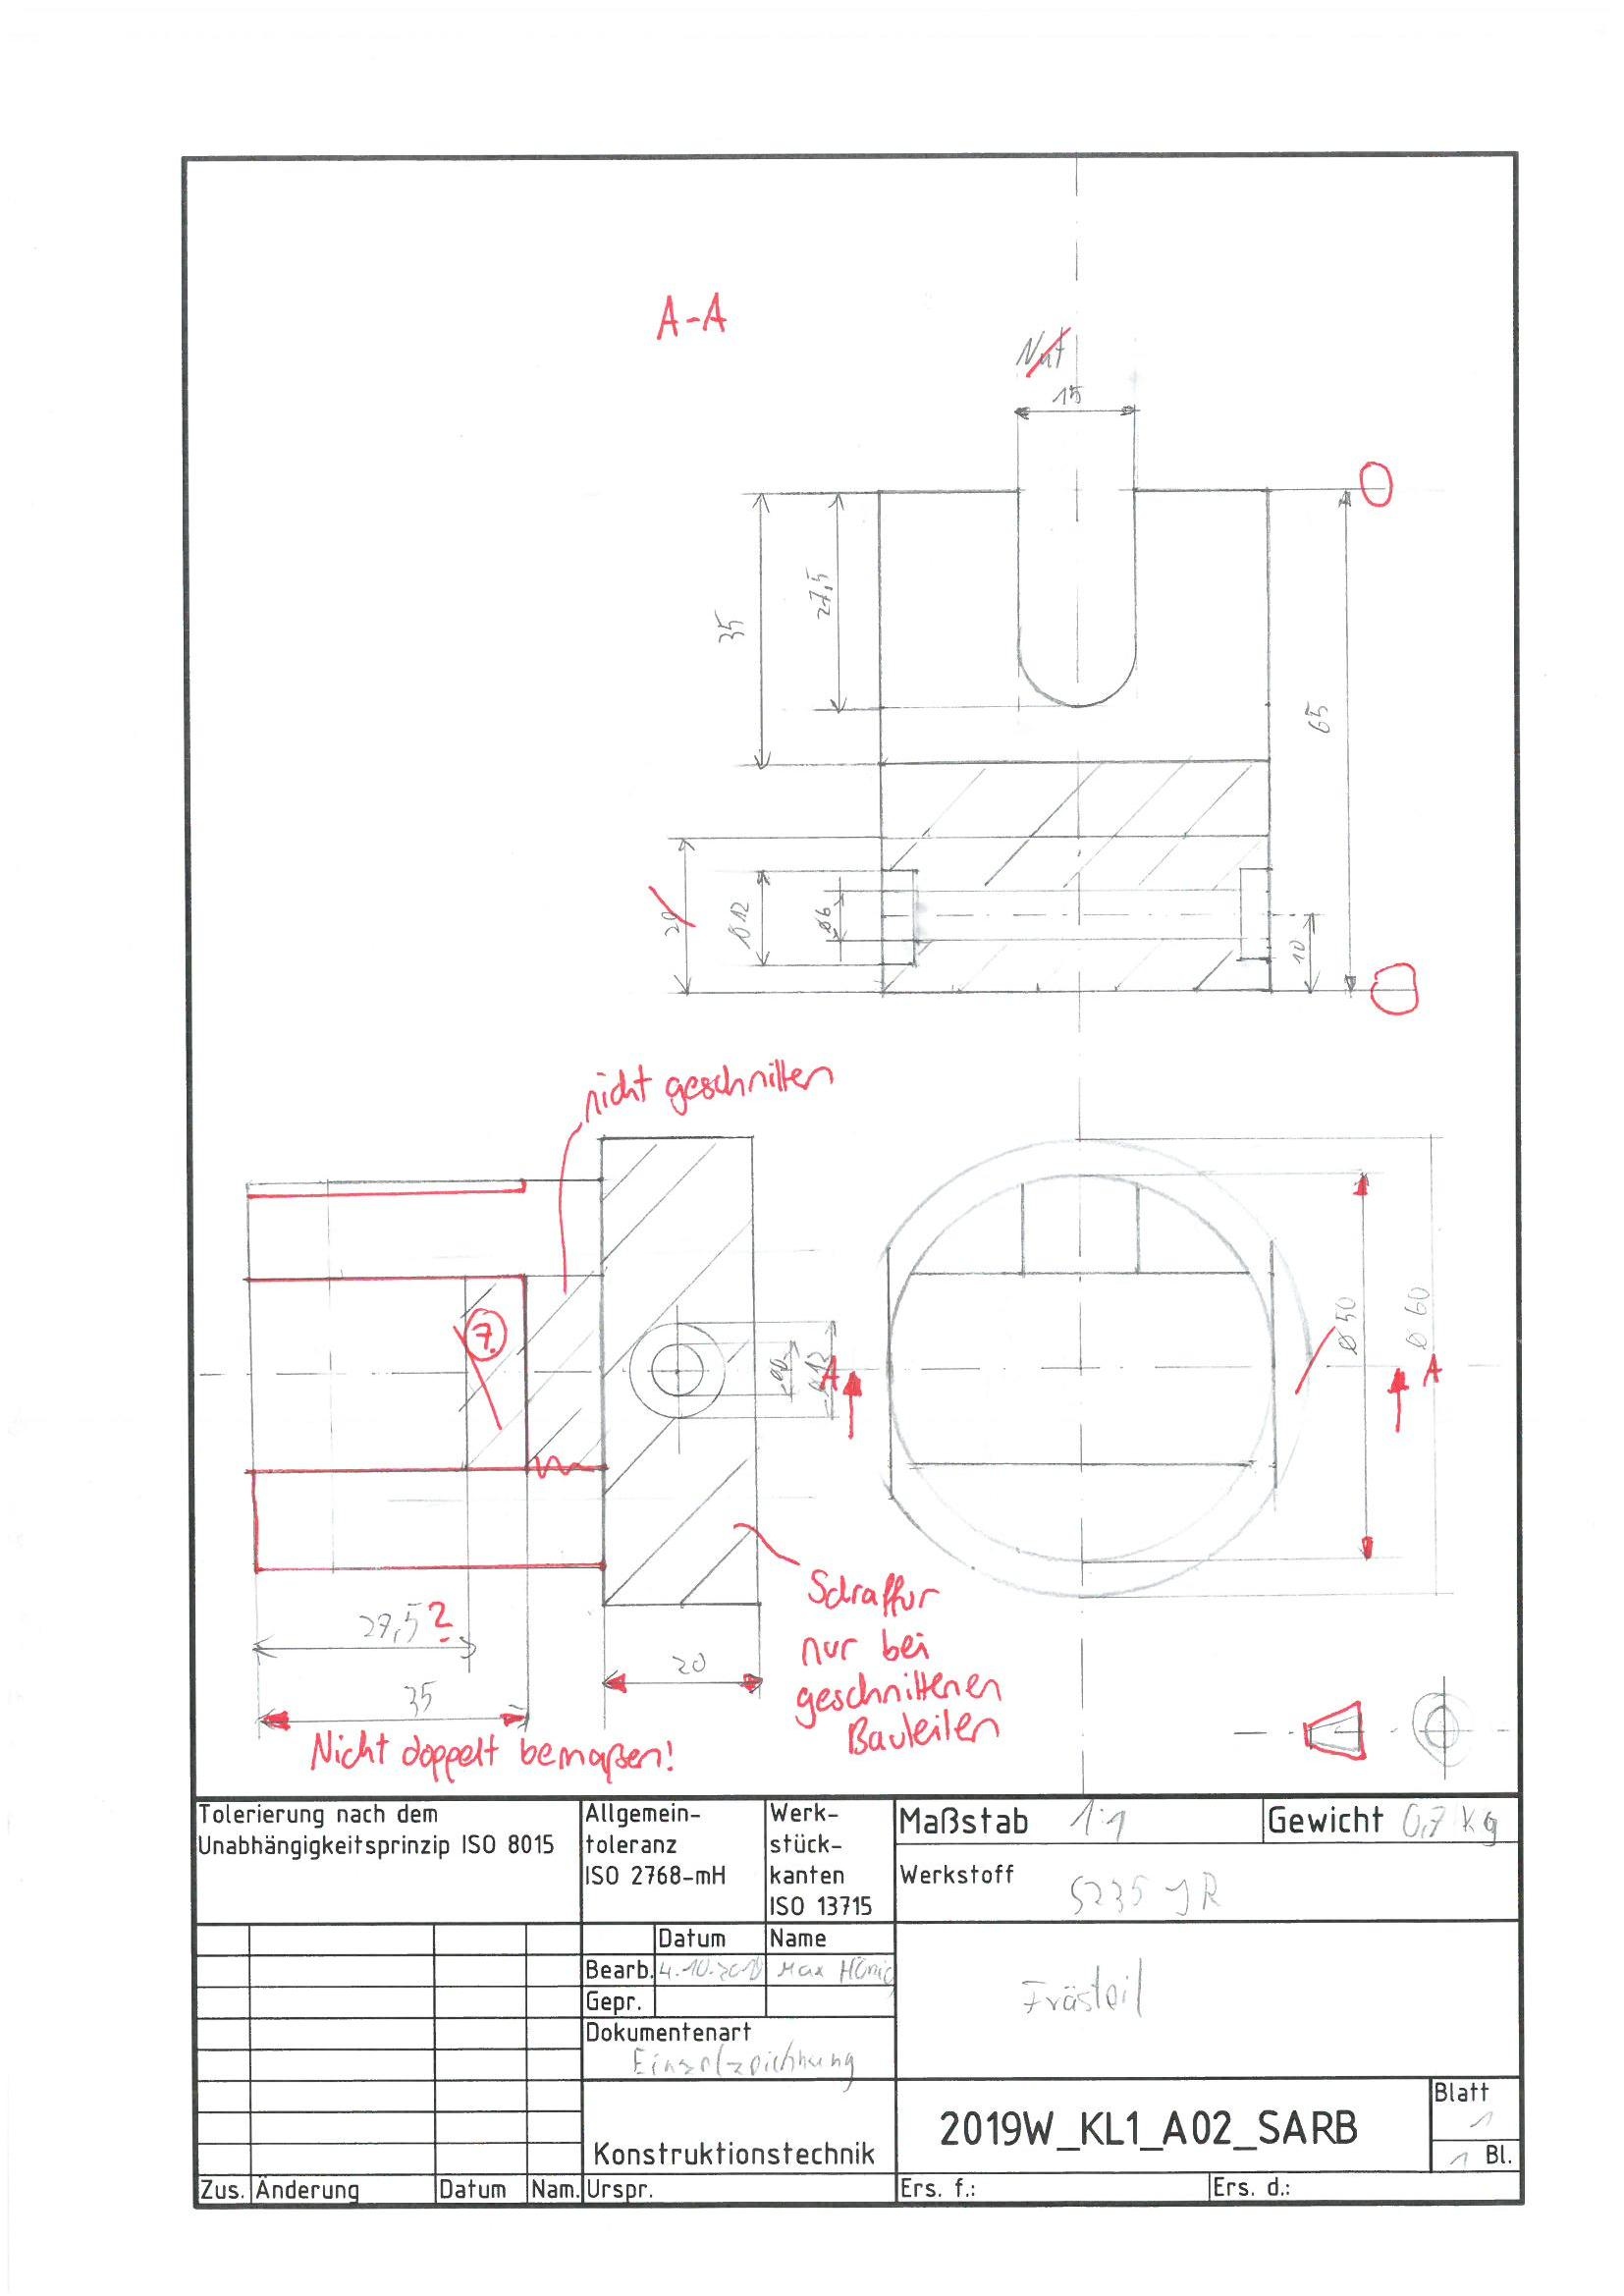 A-A
Nut
15
35
27,5
65
20
Ø12
Ø6
10
nicht geschnitten
7.
Ø50
Ø 60
A
A
Schraffur
nur bei
geschnittenen
Bauteilen
27,5?
20
35
Nicht doppelt bemaßen!
Tolerierung nach dem
Unabhängigkeitsprinzip ISO 8015
Allgemein-
toleranz
ISO 2768-mH
Werk-
stück-
kanten
ISO 13715
Maßstab 1:1
Gewicht 0,7 kg
Werkstoff S235 JR
Datum Name
Bearb. Max Hönig
Gepr.
Dokumentenart
Einzelzeichnung
Frästeil
Konstruktionstechnik
2019W_KL1_A02_SARB
Blatt
1
1 Bl.
Zus. Änderung Datum Nam. Urspr. Ers. f.: Ers. d.: